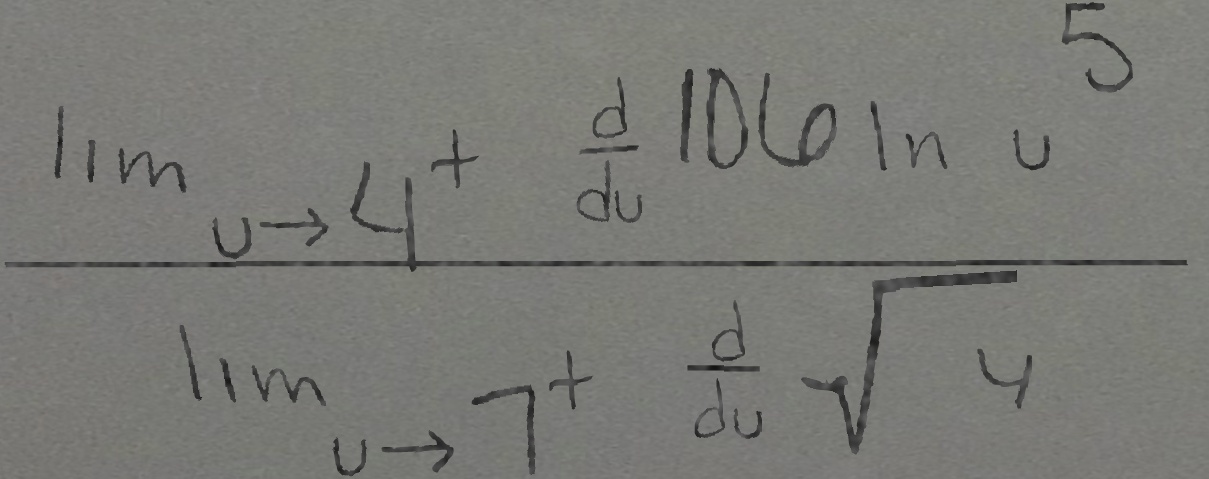 \frac{\lim_{u \to 4^+} \frac{d}{du} 106 \ln u^5}{\lim_{u \to 7^+} \frac{d}{du} \sqrt{4}}